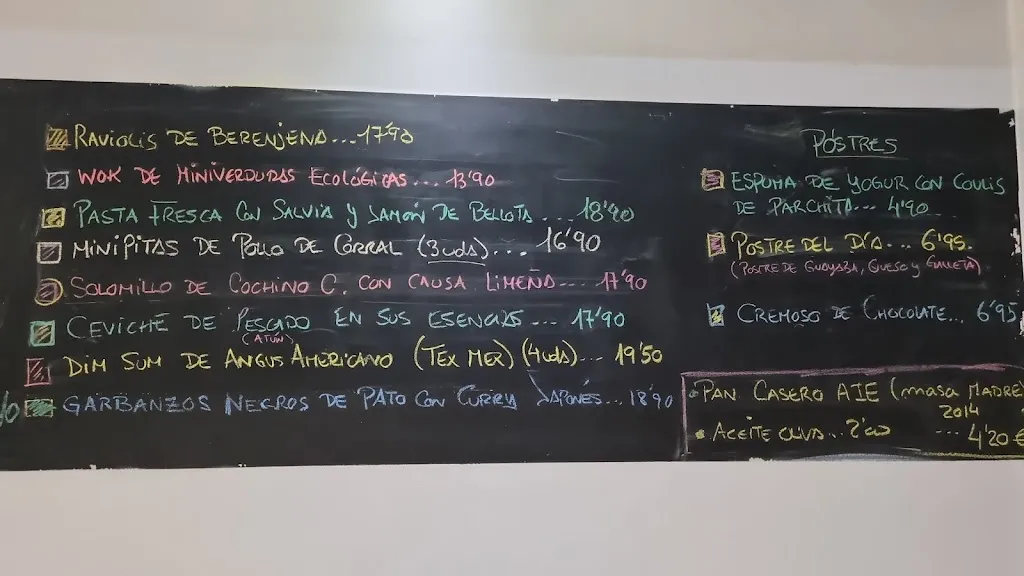 RAVIOLIS DE BERENJENA...17'90
WOK DE MINIVERDURAS ECOLÓGICAS... 13'90
PASTA FRESCA CON SALVIA Y JAMÓN DE BELLOTA .... 18'90
MINIPITAS DE POLLO DE CORRAL (3 uds)... 16'90
SOLOMILLO DE COCHINO C. CON CAUSA LIMEÑA.... 17'90
CEVICHE DE PESCADO EN SUS ESENCIAS ... 17'90
(ATÚN)
DIM SUM DE ANGUS AMERICANO (TEX MEX) (4 uds)... 19'50
GARBANZOS NEGROS DE PATO CON CURRY JAPONÉS... 18'90
POSTRES
ESPUMA DE YOGUR CON COULIS
DE PARCHITA... 4'90
POSTRE DEL DÍA... 6'95.
(POSTRE DE GUAYABA, QUESO y GALLETA)
CREMOSO DE CHOCOLATE... 6'95
• PAN CASERO AIE (masa MADRE)
2014
• ACEITE OLIVA... 2'00 ... 4'20 €